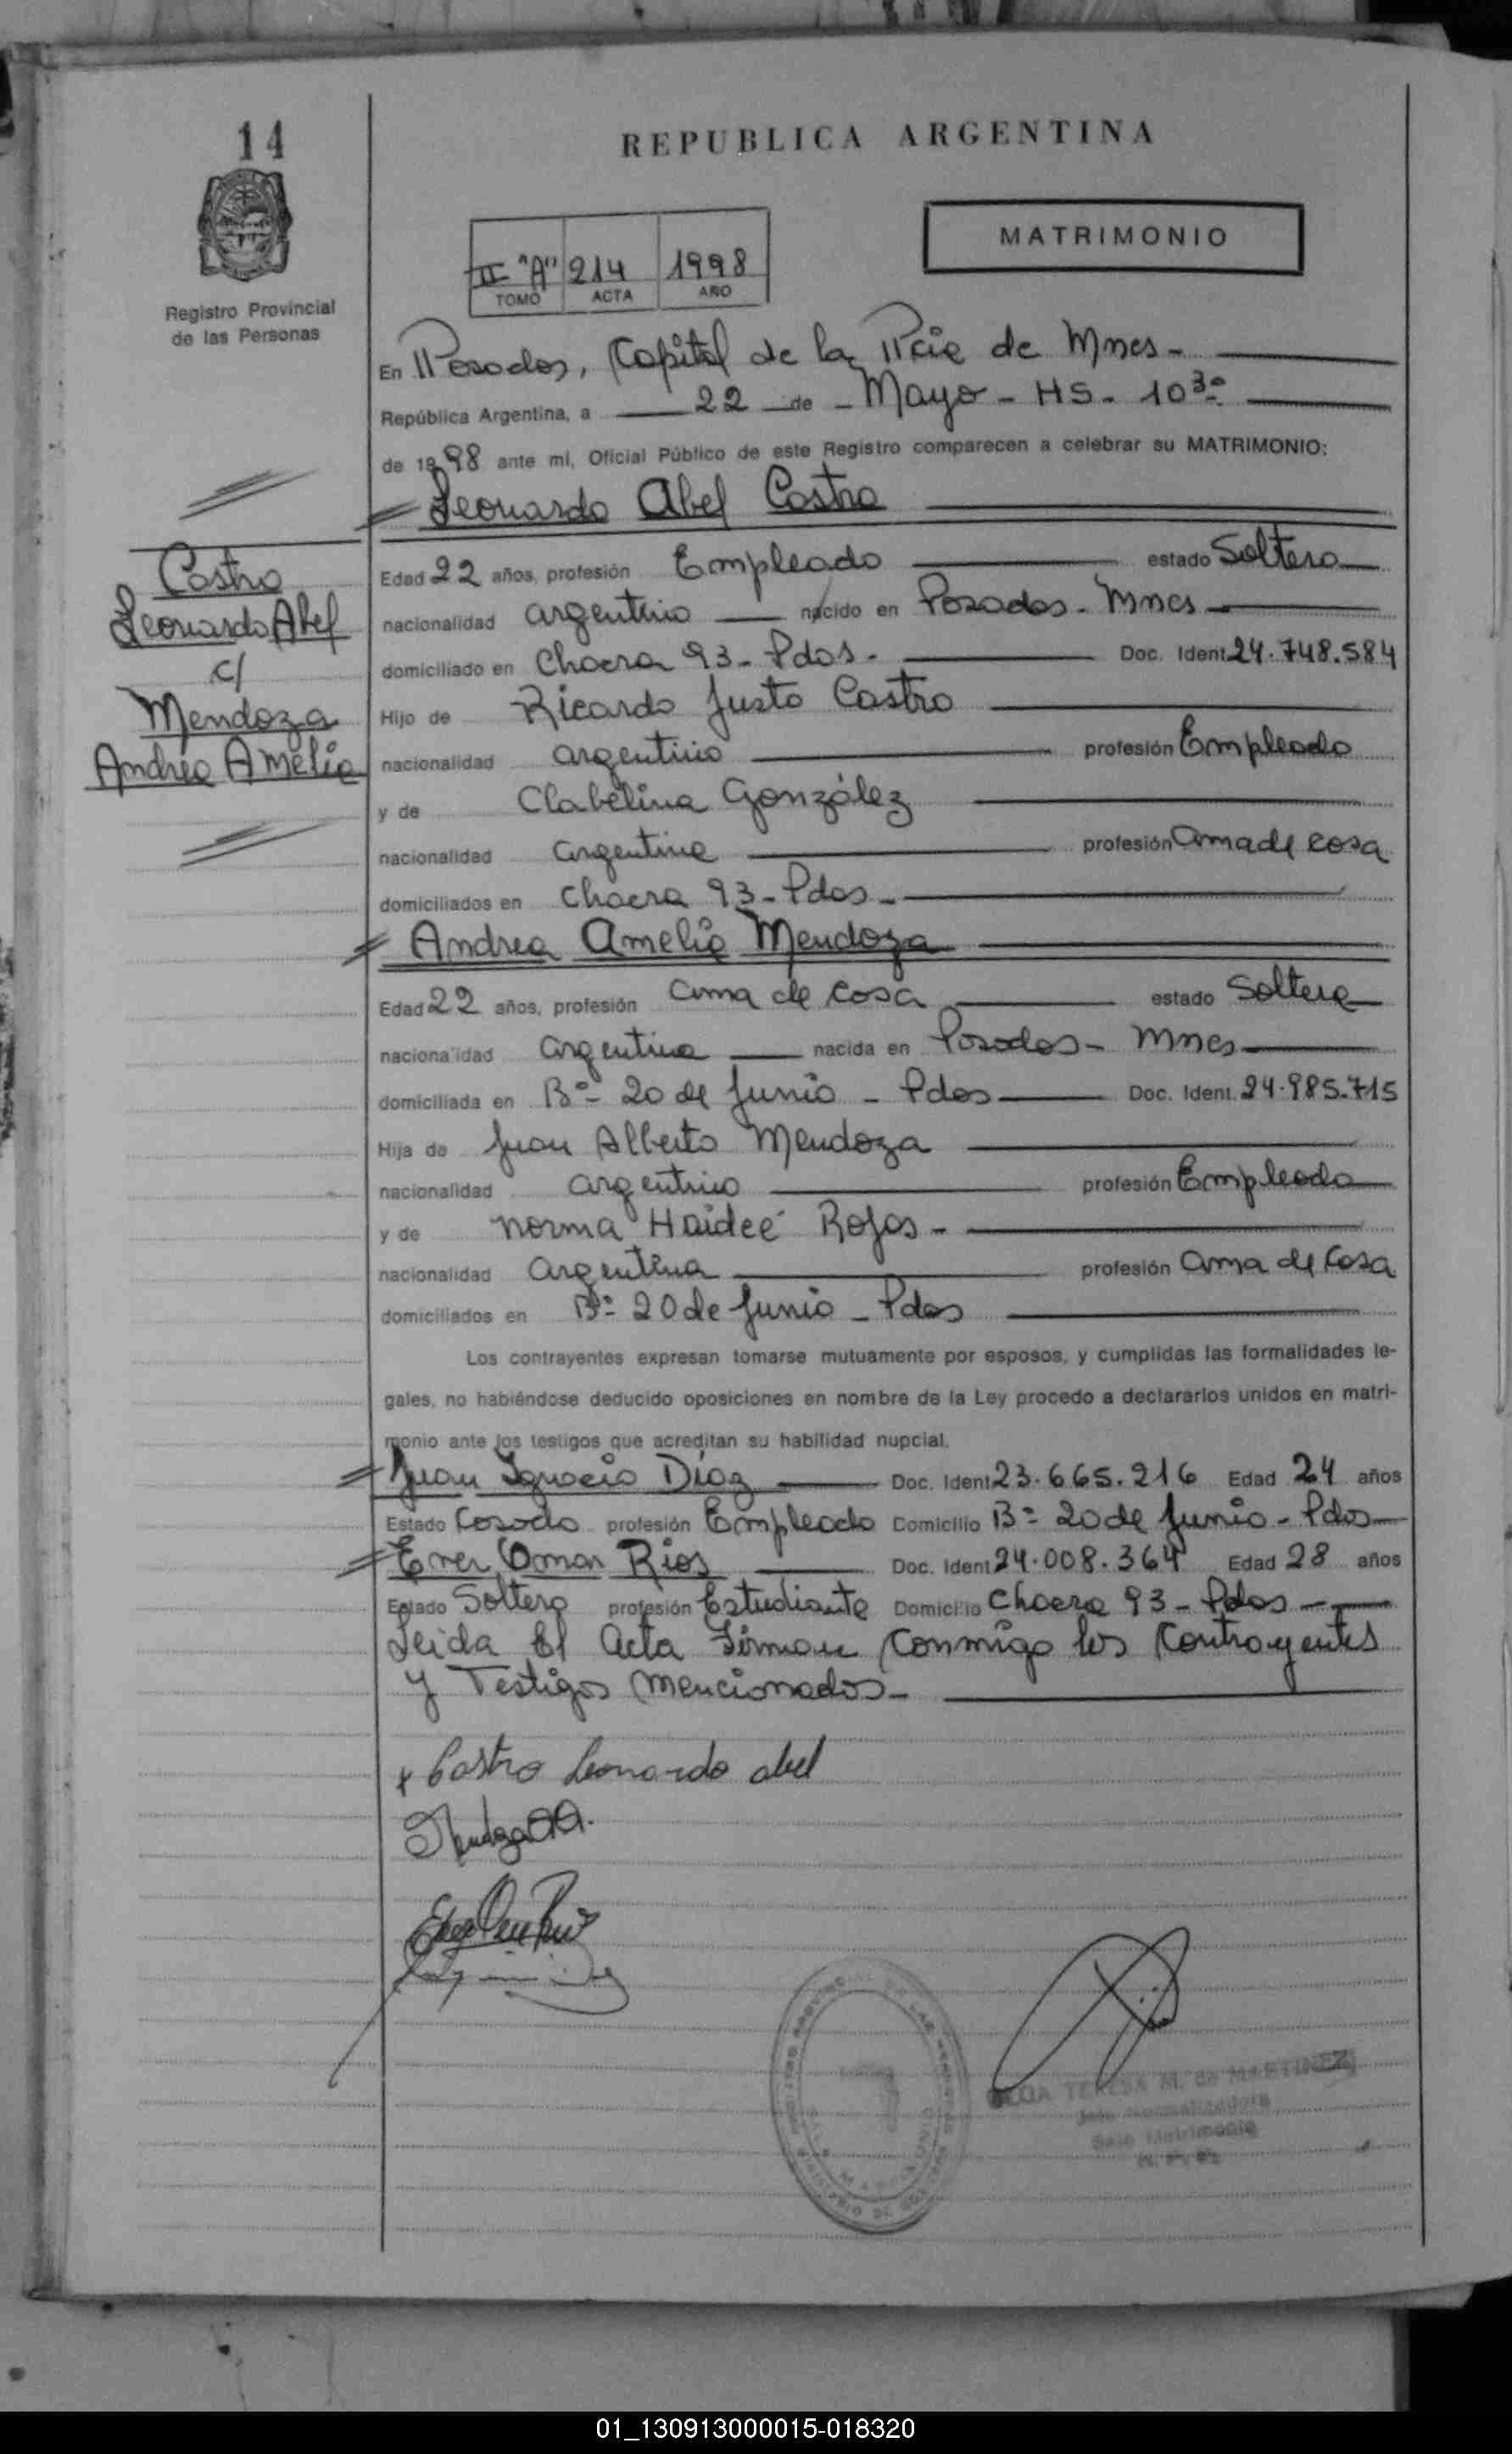 14
REPUBLICA ARGENTINA
MATRIMONIO
II "A" 214 1998
TOMO ACTA AÑO
Registro Provincial
de las Personas
En Posadas, Capital de la Pcie de Mnes-
República Argentina, a 22 de - Mayo - HS. 10 30
de 1998 ante mi, Oficial Público de este Registro comparecen a celebrar su MATRIMONIO:
Leonardo Abel Castro
Castro
Leonardo Abel
c/
Mendoza
Andrea Amelia
Edad 22 años, profesión Empleado estado Soltero
nacionalidad argentino nacido en Posadas - Mnes
domiciliado en Chacra 93 - Pdas. Doc. Ident. 24.748.584
Hijo de Ricardo Justo Castro
nacionalidad argentino profesión Empleado
y de Clabelina González
nacionalidad argentina profesión ama de casa
domiciliados en Chacra 93 - Pdas -
Andrea Amelia Mendoza
Edad 22 años, profesión ama de casa estado Soltera
nacionalidad argentina nacida en Posadas - Mnes
domiciliada en Bº 20 de Junio - Pdas Doc. Ident. 24.985.715
Hija de Juan Alberto Mendoza
nacionalidad argentino profesión Empleado
y de Norma Haideé Rojas -
nacionalidad argentina profesión ama de casa
domiciliados en Bº 20 de Junio - Pdas
Los contrayentes expresan tomarse mutuamente por esposos, y cumplidas las formalidades le-
gales, no habiéndose deducido oposiciones en nombre de la Ley procedo a declararlos unidos en matri-
monio ante los testigos que acreditan su habilidad nupcial.
Juan Ignacio Díaz Doc. Ident 23.665.216 Edad 24 años
Estado Casado profesión Empleado Domicilio Bº 20 de Junio - Pdas
Ever Omar Rios Doc. Ident 24.008.364 Edad 28 años
Estado Soltero profesión Estudiante Domicilio Chacra 93 - Pdas -
Leida El acta Firman Conmigo los Contrayentes
y Testigos mencionados -
x Castro Leonardo abel
Mendoza A A.
OLGA TERESA M. de MARTINEZ
01_130913000015-018320